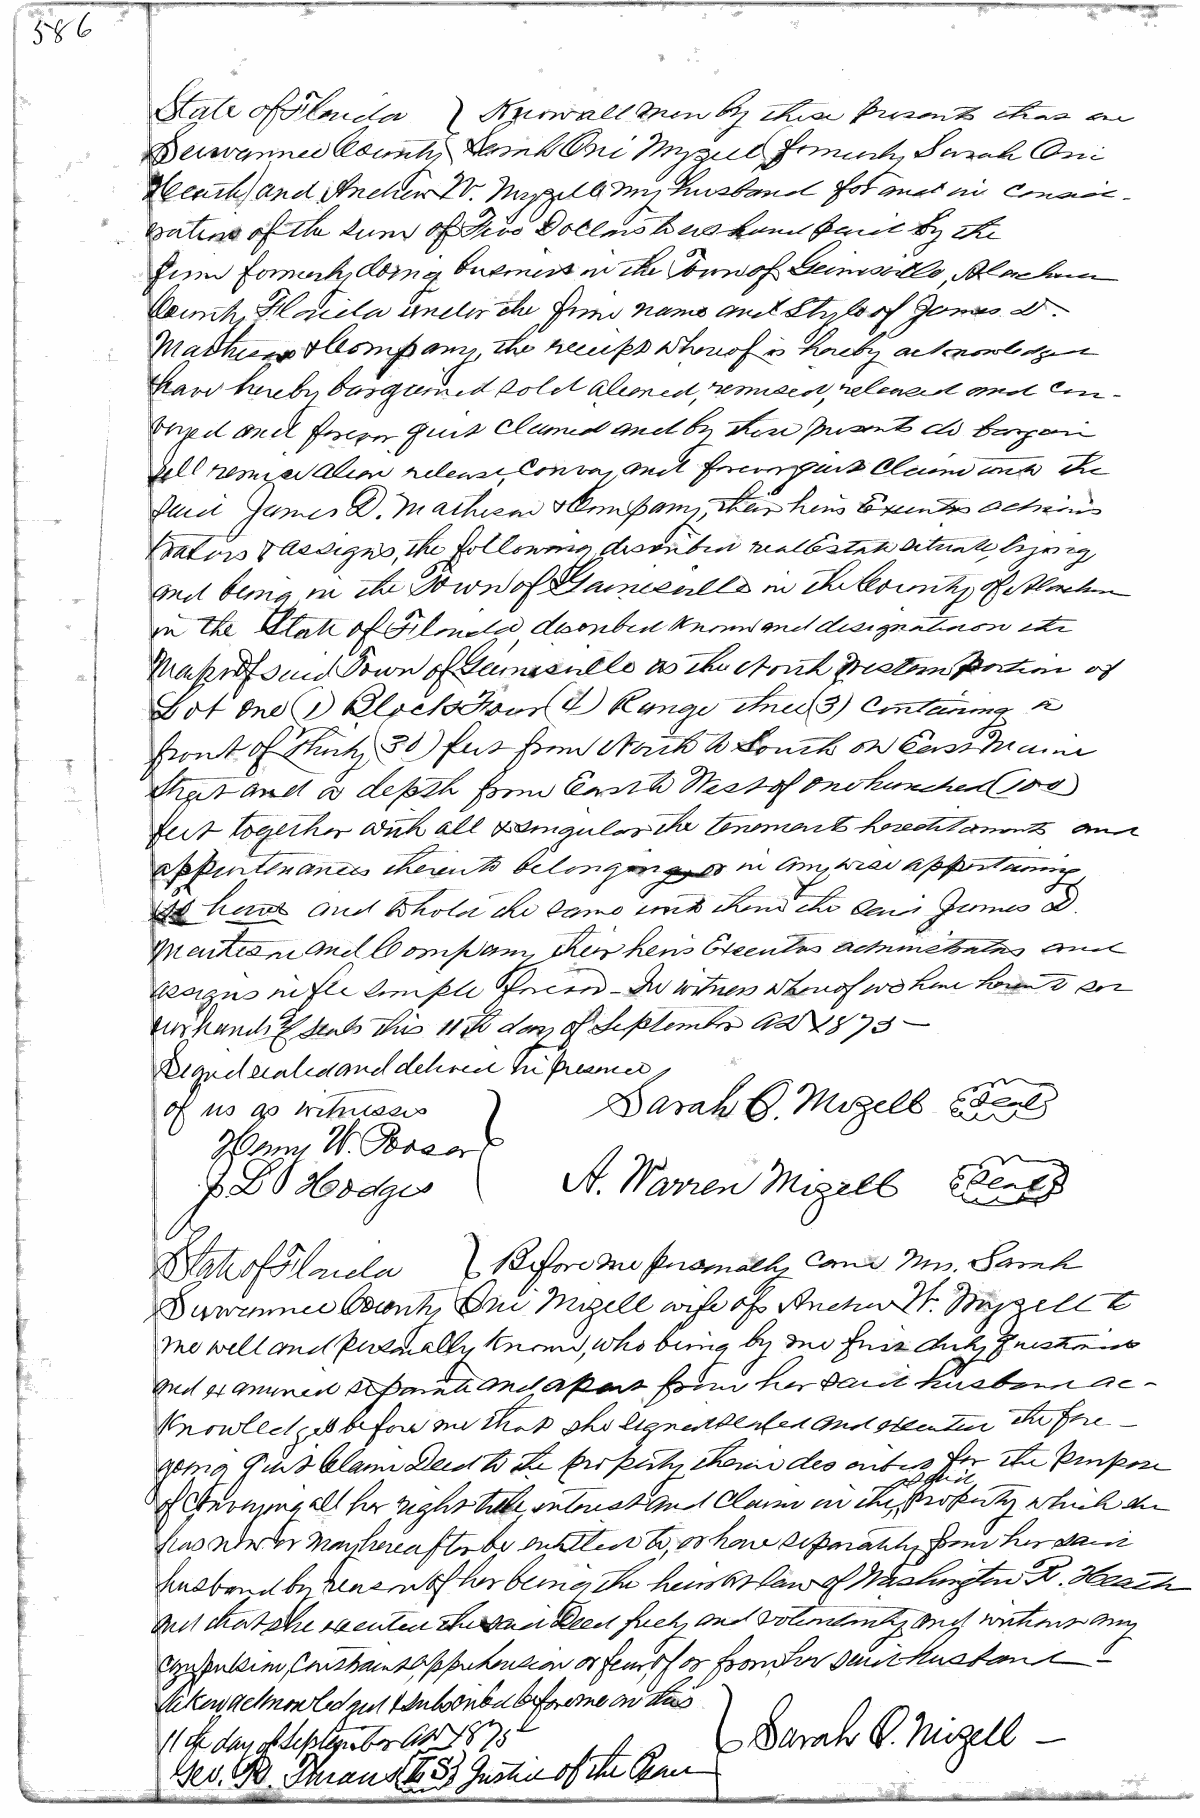 586
State of Florida } Know all men by these presents that we
Suwannee County } Sarah Oni Myzell (formerly Sarah Oni
Heath) and Andrew W. Myzell my husband for and in consid-
eration of the sum of Five Dollars to us hand paid by the
firm formerly doing business in the Town of Gainesville, Alachua
County Florida under the firm name and style of James D.
Matheson & Company, the receipt whereof is hereby acknowledged
have hereby bargained sold aliened, remised, released and con-
veyed and forever quit claimed and by these presents do bargain
sell remise alien release, convey and forever quit claim unto the
said James D. Matheson & Company, their heirs Executors adminis
trators & assigns, the following described real Estate situate, lying
and being in the Town of Gainesville in the County of Alachua
in the State of Florida, described known and designated on the
Map of said Town of Gainesville as the North Western portion of
Lot One (1) Block Four (4) Range three (3) containing a
front of Thirty (30) feet from North to South on East Maine
Street and a depth from East to West of one hundred (100)
feet together with all & singular the tenements hereditaments and
appurtenances thereunto belonging or in any wise appertaining
To have and to hold the same unto them the said James D.
Matheson and Company their heirs Executors administrators and
assigns in fee simple forever - In witness whereof we have hereunto set
our hands & seals this 11th day of September AD 1875 -
Signed sealed and delivered in presence
of us as witnesses } Sarah O. Mizell (Seal)
Henry W.
J. L. Hodges } A. Warren Mizell (Seal)
State of Florida } Before me personally came Mrs. Sarah
Suwannee County Oni Mizell wife of Andrew W. Myzell to
me well and personally known, who being by me first duly questioned
and examined separate and apart from her said husband ac-
knowledges before me that she signed sealed and executed the fore-
going quit Claim Deed to the property therein described for the purpose
of conveying all her right title, interest and claim in the said property which she
has now or may hereafter be entitled to, or have separately from her said
husband by reason of her being the heir at law of Washington R. Heath
and that she executed the said Deed freely and voluntarily and without any
compulsion, constraint, apprehension or fear, of or from, her said husband -
Taken acknowledged & subscribed before me on this
11th day of September AD 1875 } Sarah O. Mizell -
Geo. (L S) Justice of the Peace